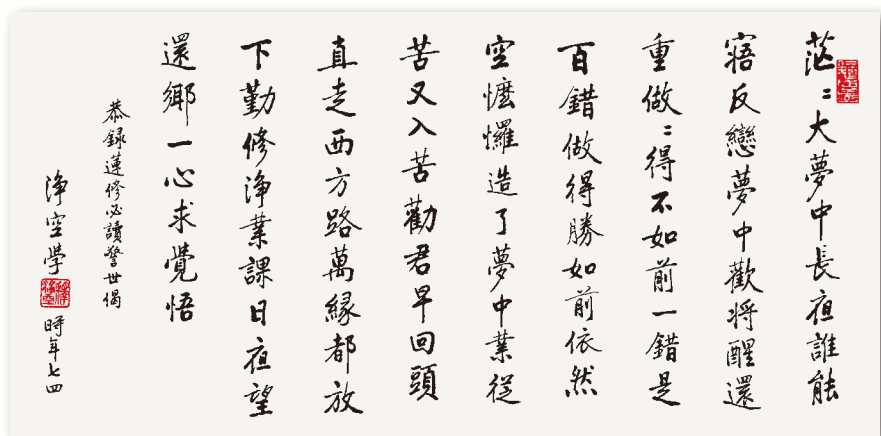 茫〻大夢中長夜誰能
寤反戀夢中歡將醒還
重做〻得不如前一錯是
百錯做得勝如前依然
空懡㦬造了夢中業從
苦又入苦勸君早回頭
直走西方路萬緣都放
下勤修淨業課日夜望
還鄉一心求覺悟
恭錄蓮修必讀警世偈
淨空學
時年七四